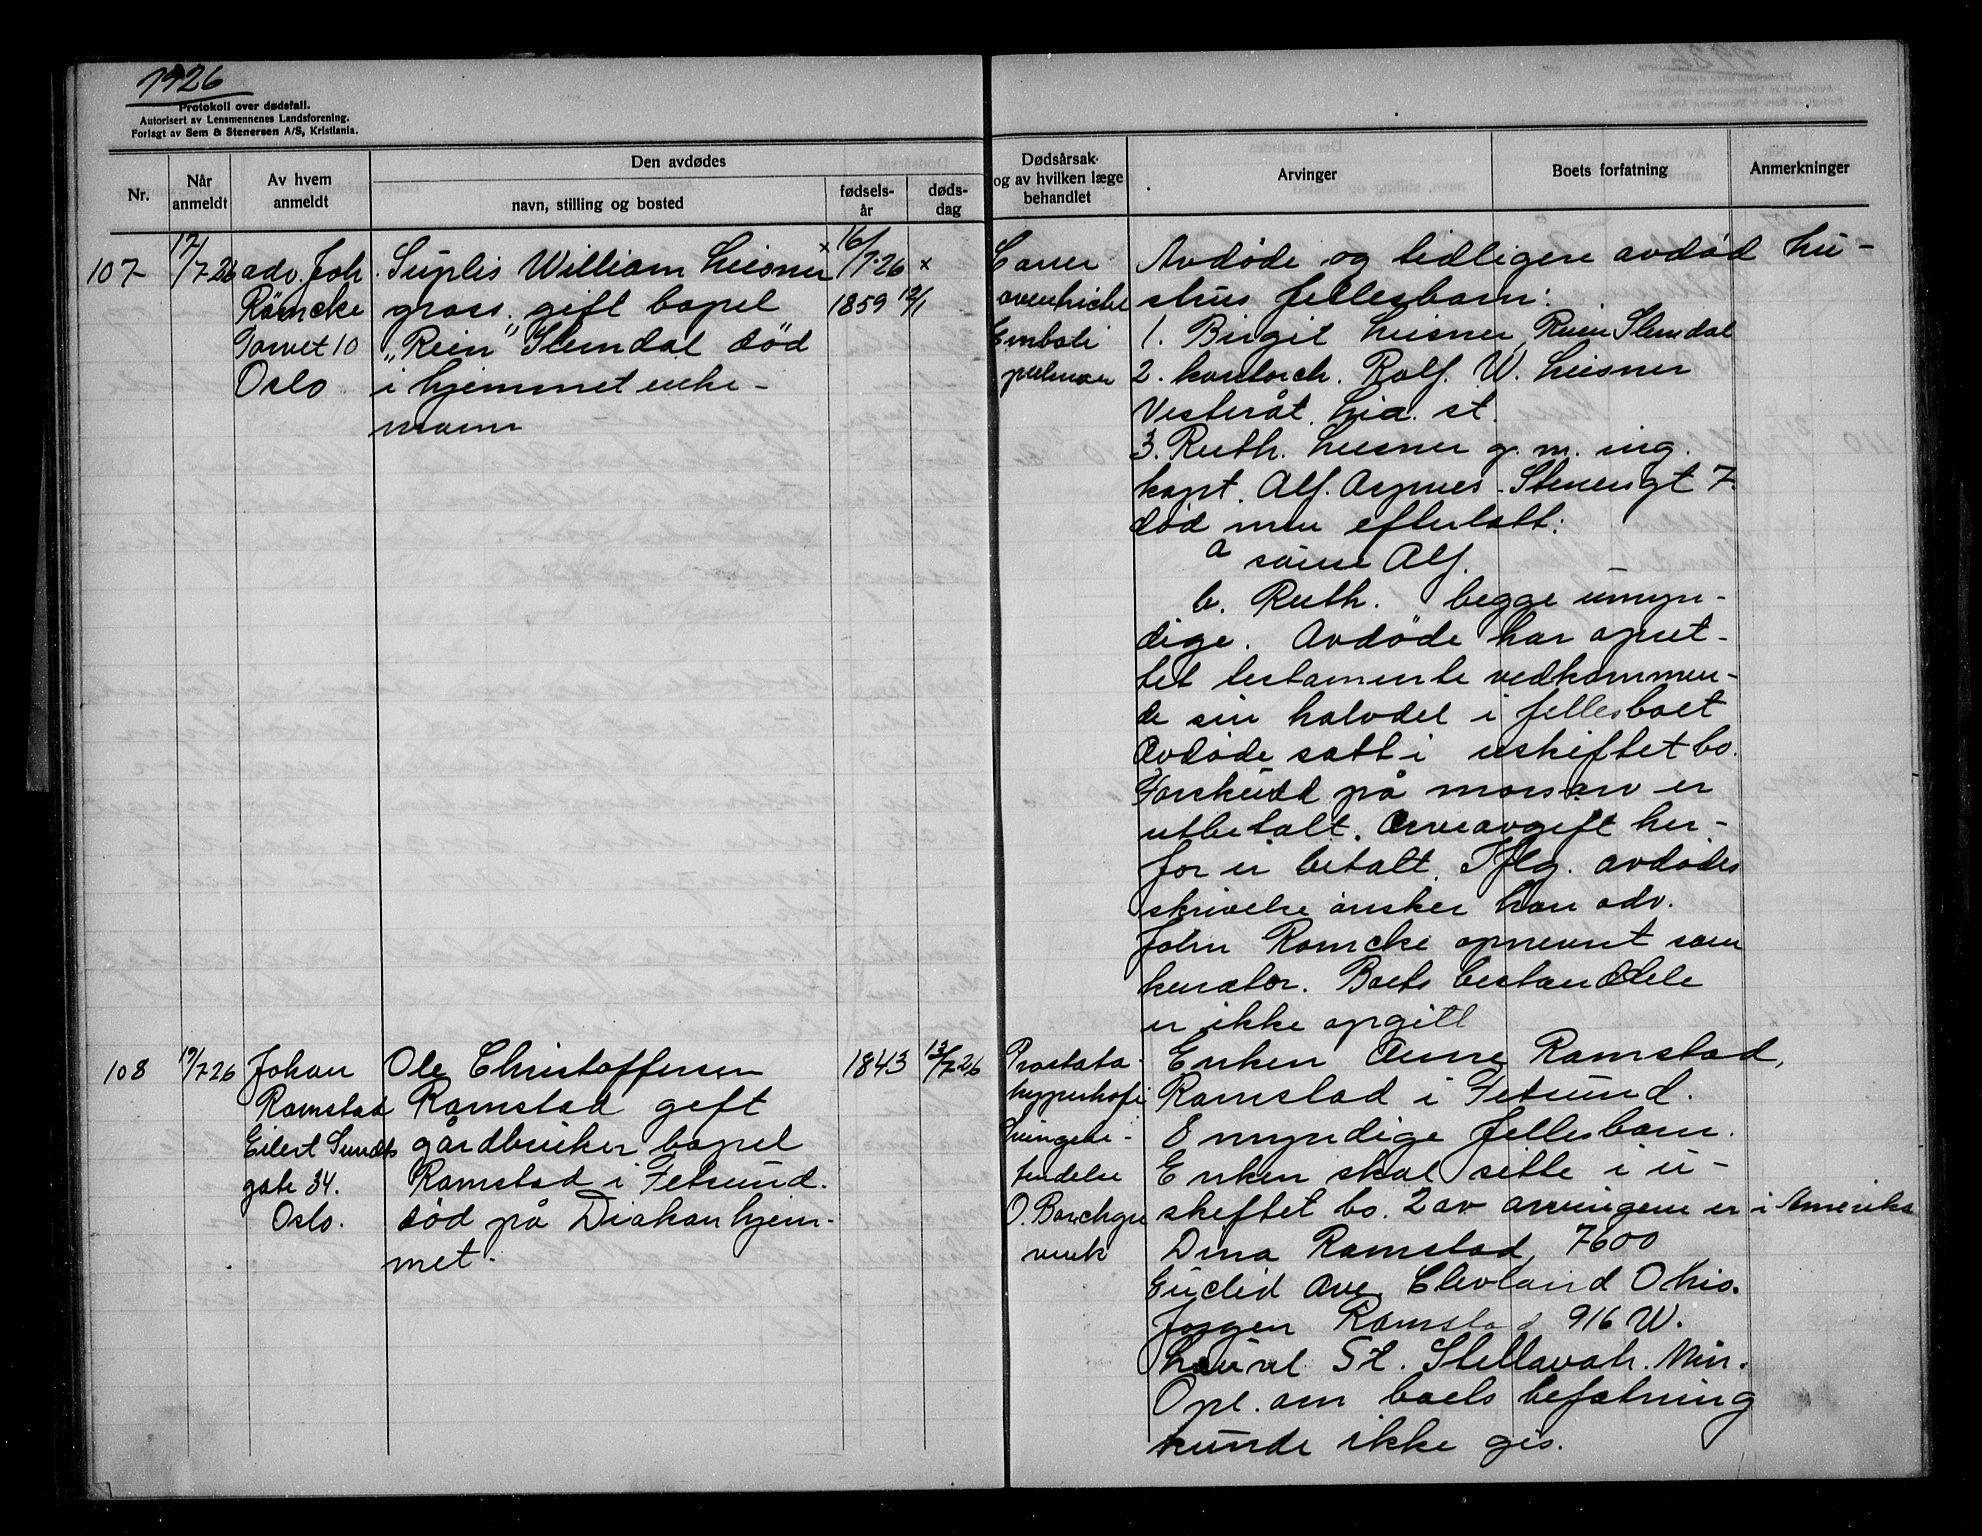 1926
Protokoll over dødsfall.
Autorisert av Lensmennenes Landsforening.
Forlagt av Sem & Stenersen A/S, Kristiania.
Nr.
Når anmeldt
Av hvem anmeldt
Den avdødes
navn, stilling og bosted
fødsels-år
døds-dag
Dødsårsak og av hvilken læge behandlet
Arvinger
Boets forfatning
Anmerkninger
107
17/7 26
adv. Joh
Römcke
Torvet 10
Oslo
William Leisner
gross. gift bopel
"Reien" Slemdal død
i hjemmet enke-
mann
x 16/7-26 x
1859 12/1
Cancer
ventricle
Emboli
pulmon
Avdøde og tidligere avdød hu-
strus fellesbarn:
1. Birgit Leisner, Reien Slemdal
2. kontorch. Rolf. W. Leisner
Vesteråt. Lia. st.
3. Ruth. Leisner g. m. ing.
kapt. Alf. Stenersgt 7.
død men efterlatt:
a sønn Alf.
b. Ruth. begge umyn-
dige. Avdøde har opret-
tet testamente vedkommen-
de sin halvdel i fellesboet
Avdøde satt i uskiftet bo.
Forskudd på morsarv er
utbetalt. Arveavgift her-
for er betalt. Iflg. avdødes
skrivelse ønsker han adv.
John Romcke opnevnt som
kurator. Boets bestanddele
er ikke opgitt
108
19/7 26
Johan
Ramstad
Eilert Sundts
gate 34.
Oslo.
Ole Christoffersen
Ramstad gift
gårdbruker bopel
Ramstad i Fetsund.
død på Diakonhjem-
met.
1843
13/7 26
Prostata-
hypertrofi
lungebe-
tendelse
O. Borchgre
vink
Enken Anne Ramstad,
Ramstad i Fetsund.
8 myndige fellesbarn.
Enken skal sitte i u-
skiftet bo. 2 av arvingene er i Amerika
Dina Ramstad, 7600
Euclid Ave. Clevland Ohio.
Jørgen Ramstad 916 W.
Laurel St. Min.
Opl. om boets befatning
kunde ikke gis.